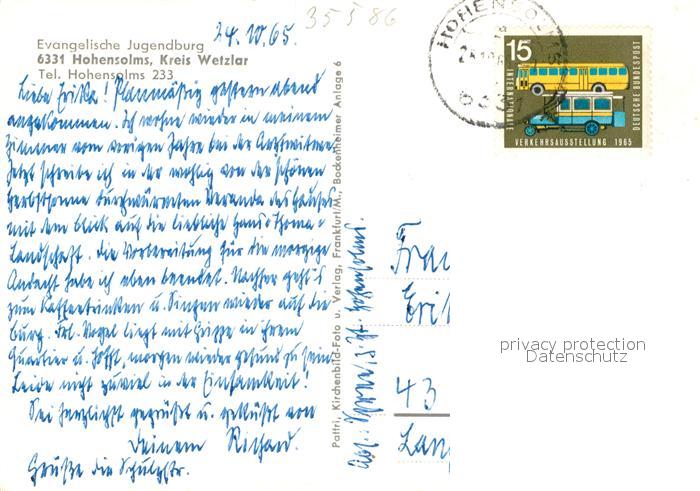 35 J 86
24.10.65.
Evangelische Jugendburg
6331 Hohensolms, Kreis Wetzlar
Tel. Hohensolms 233
Liebe Erika! Planmäßig gestern abend
angekommen. Ich wohne wieder in meinem
Zimmer vom vorigen Jahre bei der Arztwitwe.
Jetzt schreibe ich in der wohlig von der schönen
Herbstsonne durchwärmten Veranda des Hauses
mit dem Blick auf die liebliche Hans-Thoma-
Landschaft. Die Vorbereitung für die morgige
Andacht habe ich eben beendet. Nachher geht's
zum Kaffeetrinken u. Singen wieder auf die
Burg. Frl. Vogel liegt mit Grippe in ihrem
Quartier u. hofft, morgen wieder gesund zu sein.
Leide nicht zuviel in der Einsamkeit!
Sei herzlichst gegrüßt u. geküßt von
Deinem Richard.
Grüße die Schulzstr.
Pattri, Kirchenbild-Foto u. Verlag, Frankfurt/M., Bockenheimer Anlage 6
Hohensolms.
HOHENSOLMS
6331
15
INTERNATIONALE
VERKEHRSAUSSTELLUNG 1965
DEUTSCHE BUNDESPOST
Frau
Eri
43
Lan
privacy protection
Datenschutz